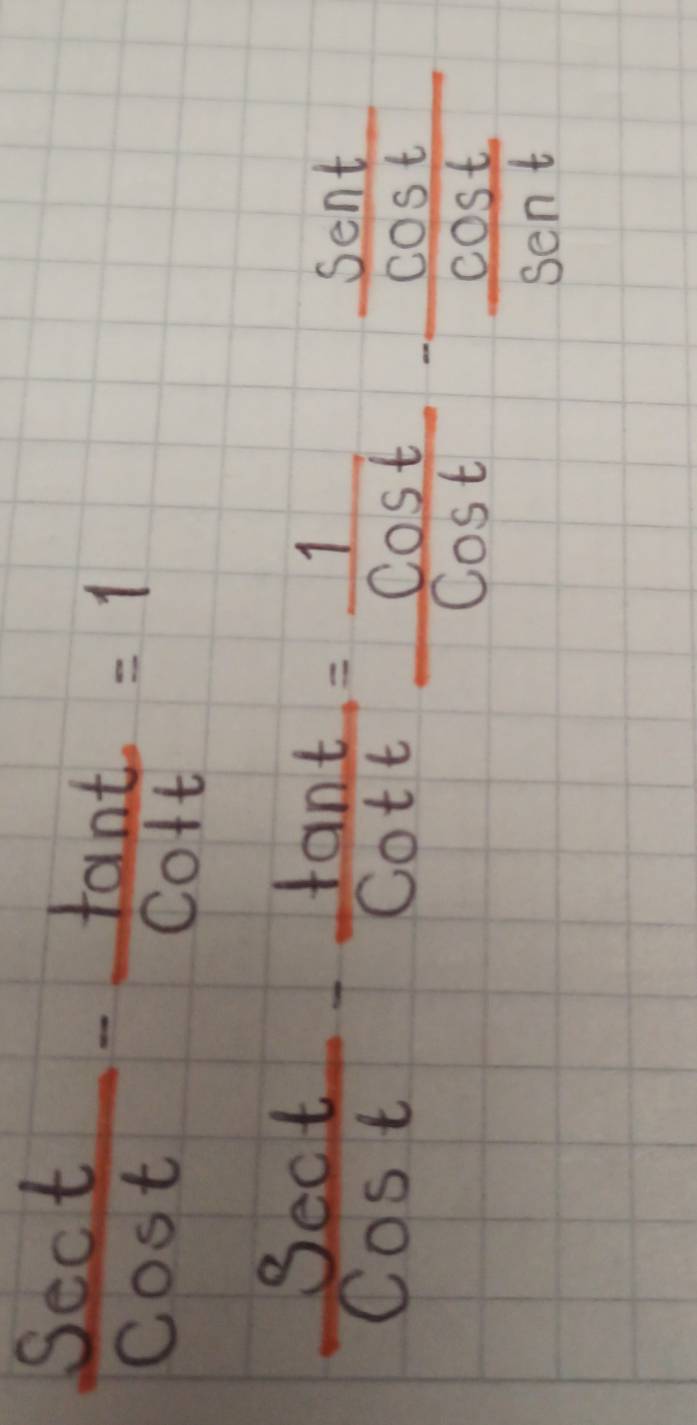 Sect/Cost - tant/Cott = 1
Sect/Cost - tant/Cott = (1/Cost)/Cost - (Sent/cost)/(cost/Sent)